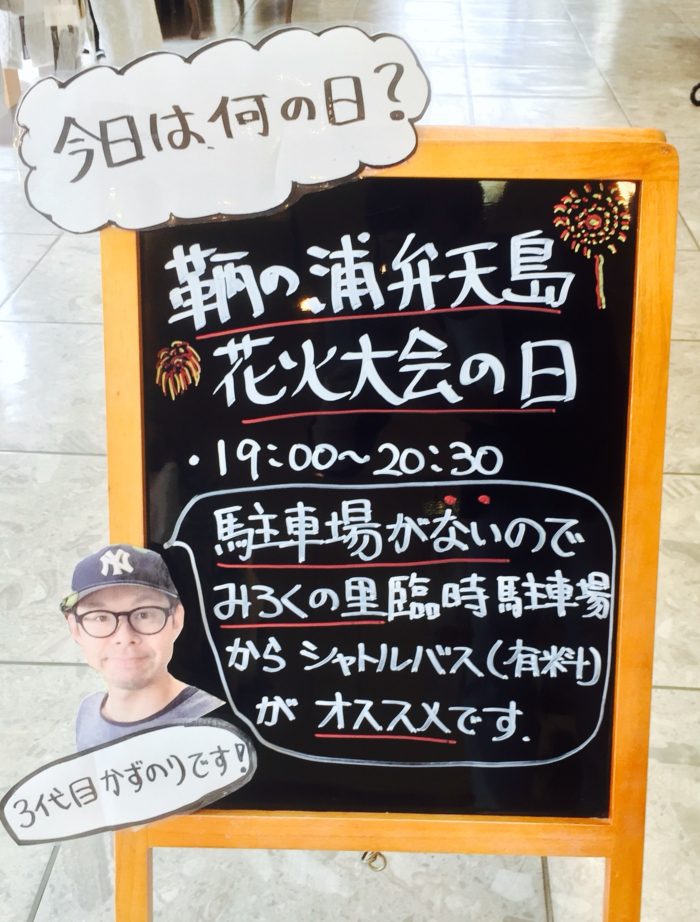 今日は何の日?
鞆の浦弁天島
花火大会の日
・19:00~20:30
駐車場がないので
みろくの里臨時駐車場
からシャトルバス(有料)
がオススメです.
NY
3代目かずのりです!